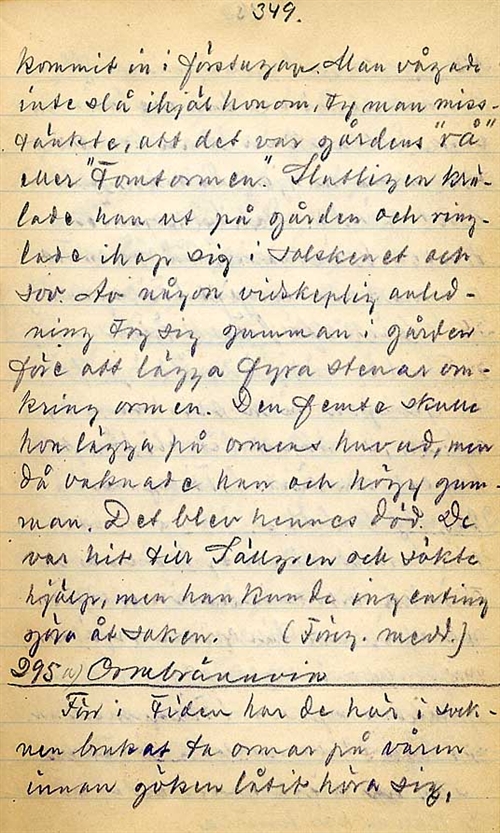 349.
kommit in i förstugan. Man vågade
inte slå ihjäl honom, ty man miss-
tänkte, att det var gårdens "rå"
eller "Tomtormen." Slutligen krä-
lade han ut på gården och ring-
lade ihop sig i solskenet och
sov. Av någon vidskeplig anled-
ning tog sig gumman i gården
före att lägga fyra stenar om-
kring ormen. Den femte skulle
hon lägga på ormens huvud, men
då vaknade han och högg gum-
man. Det blev hennes död. De
var hit till Sällgren och sökte
hjälp, men han kunde ingenting
göra åt saken. (Föreg. medd.)
295 a) Ormbrännvin
Förr i tiden har de här i sock-
nen brukat ta ormar på våren
innan göken låtit höra sig,